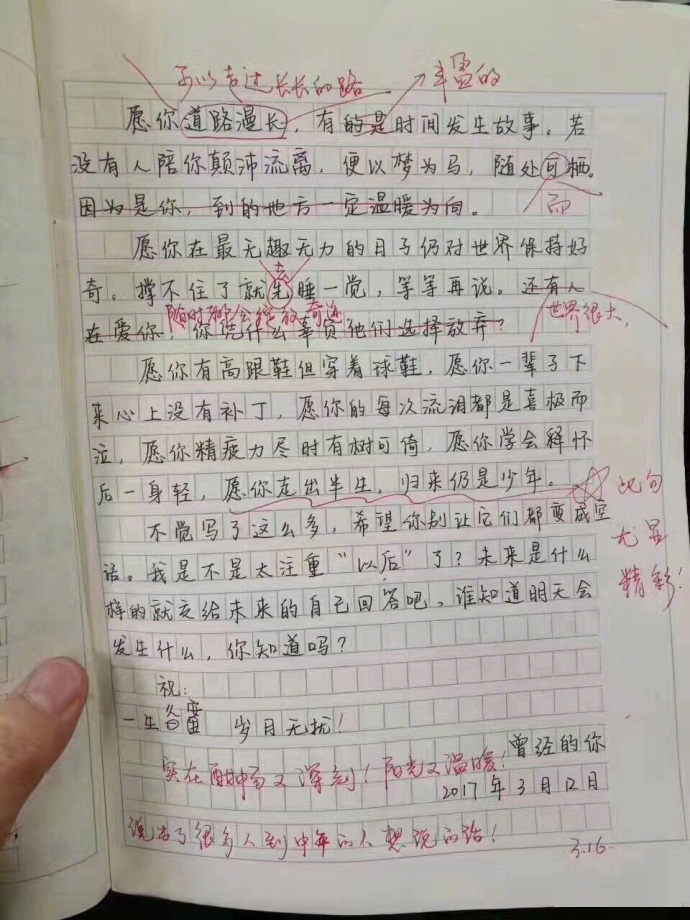 可以走过长长的路 丰盈的
愿你道路漫长，有的是时间发生故事。若
没有人陪你颠沛流离，便以梦为马，随处可栖。
因为是你，到的地方一定温暖为向。 而
愿你在最无趣无力的日子仍对世界保持好
去
奇。撑不住了就先睡一觉，等等再说。还有人
随时都会绽放奇迹 世界很大，
在爱你，你凭什么辜负他们选择放弃？
愿你有高跟鞋但穿着球鞋，愿你一辈子下
来心上没有补丁，愿你的每次流泪都是喜极而
泣，愿你精疲力尽时有树可倚，愿你学会释怀
后一身轻，愿你走出半生，归来仍是少年。 此句
不觉写了这么多，希望你别让它们都变成空 尤显
话。我是不是太注重“以后”了？未来是什么 精彩！
样的就交给未来的自己回答吧，谁知道明天会
发生什么，你知道吗？
祝：
一生 岁月无扰！
曾经的你
实在 又深刻！阳光又温暖！
2017年3月12日
说出了很多人到中年的人想说的话！
3.16